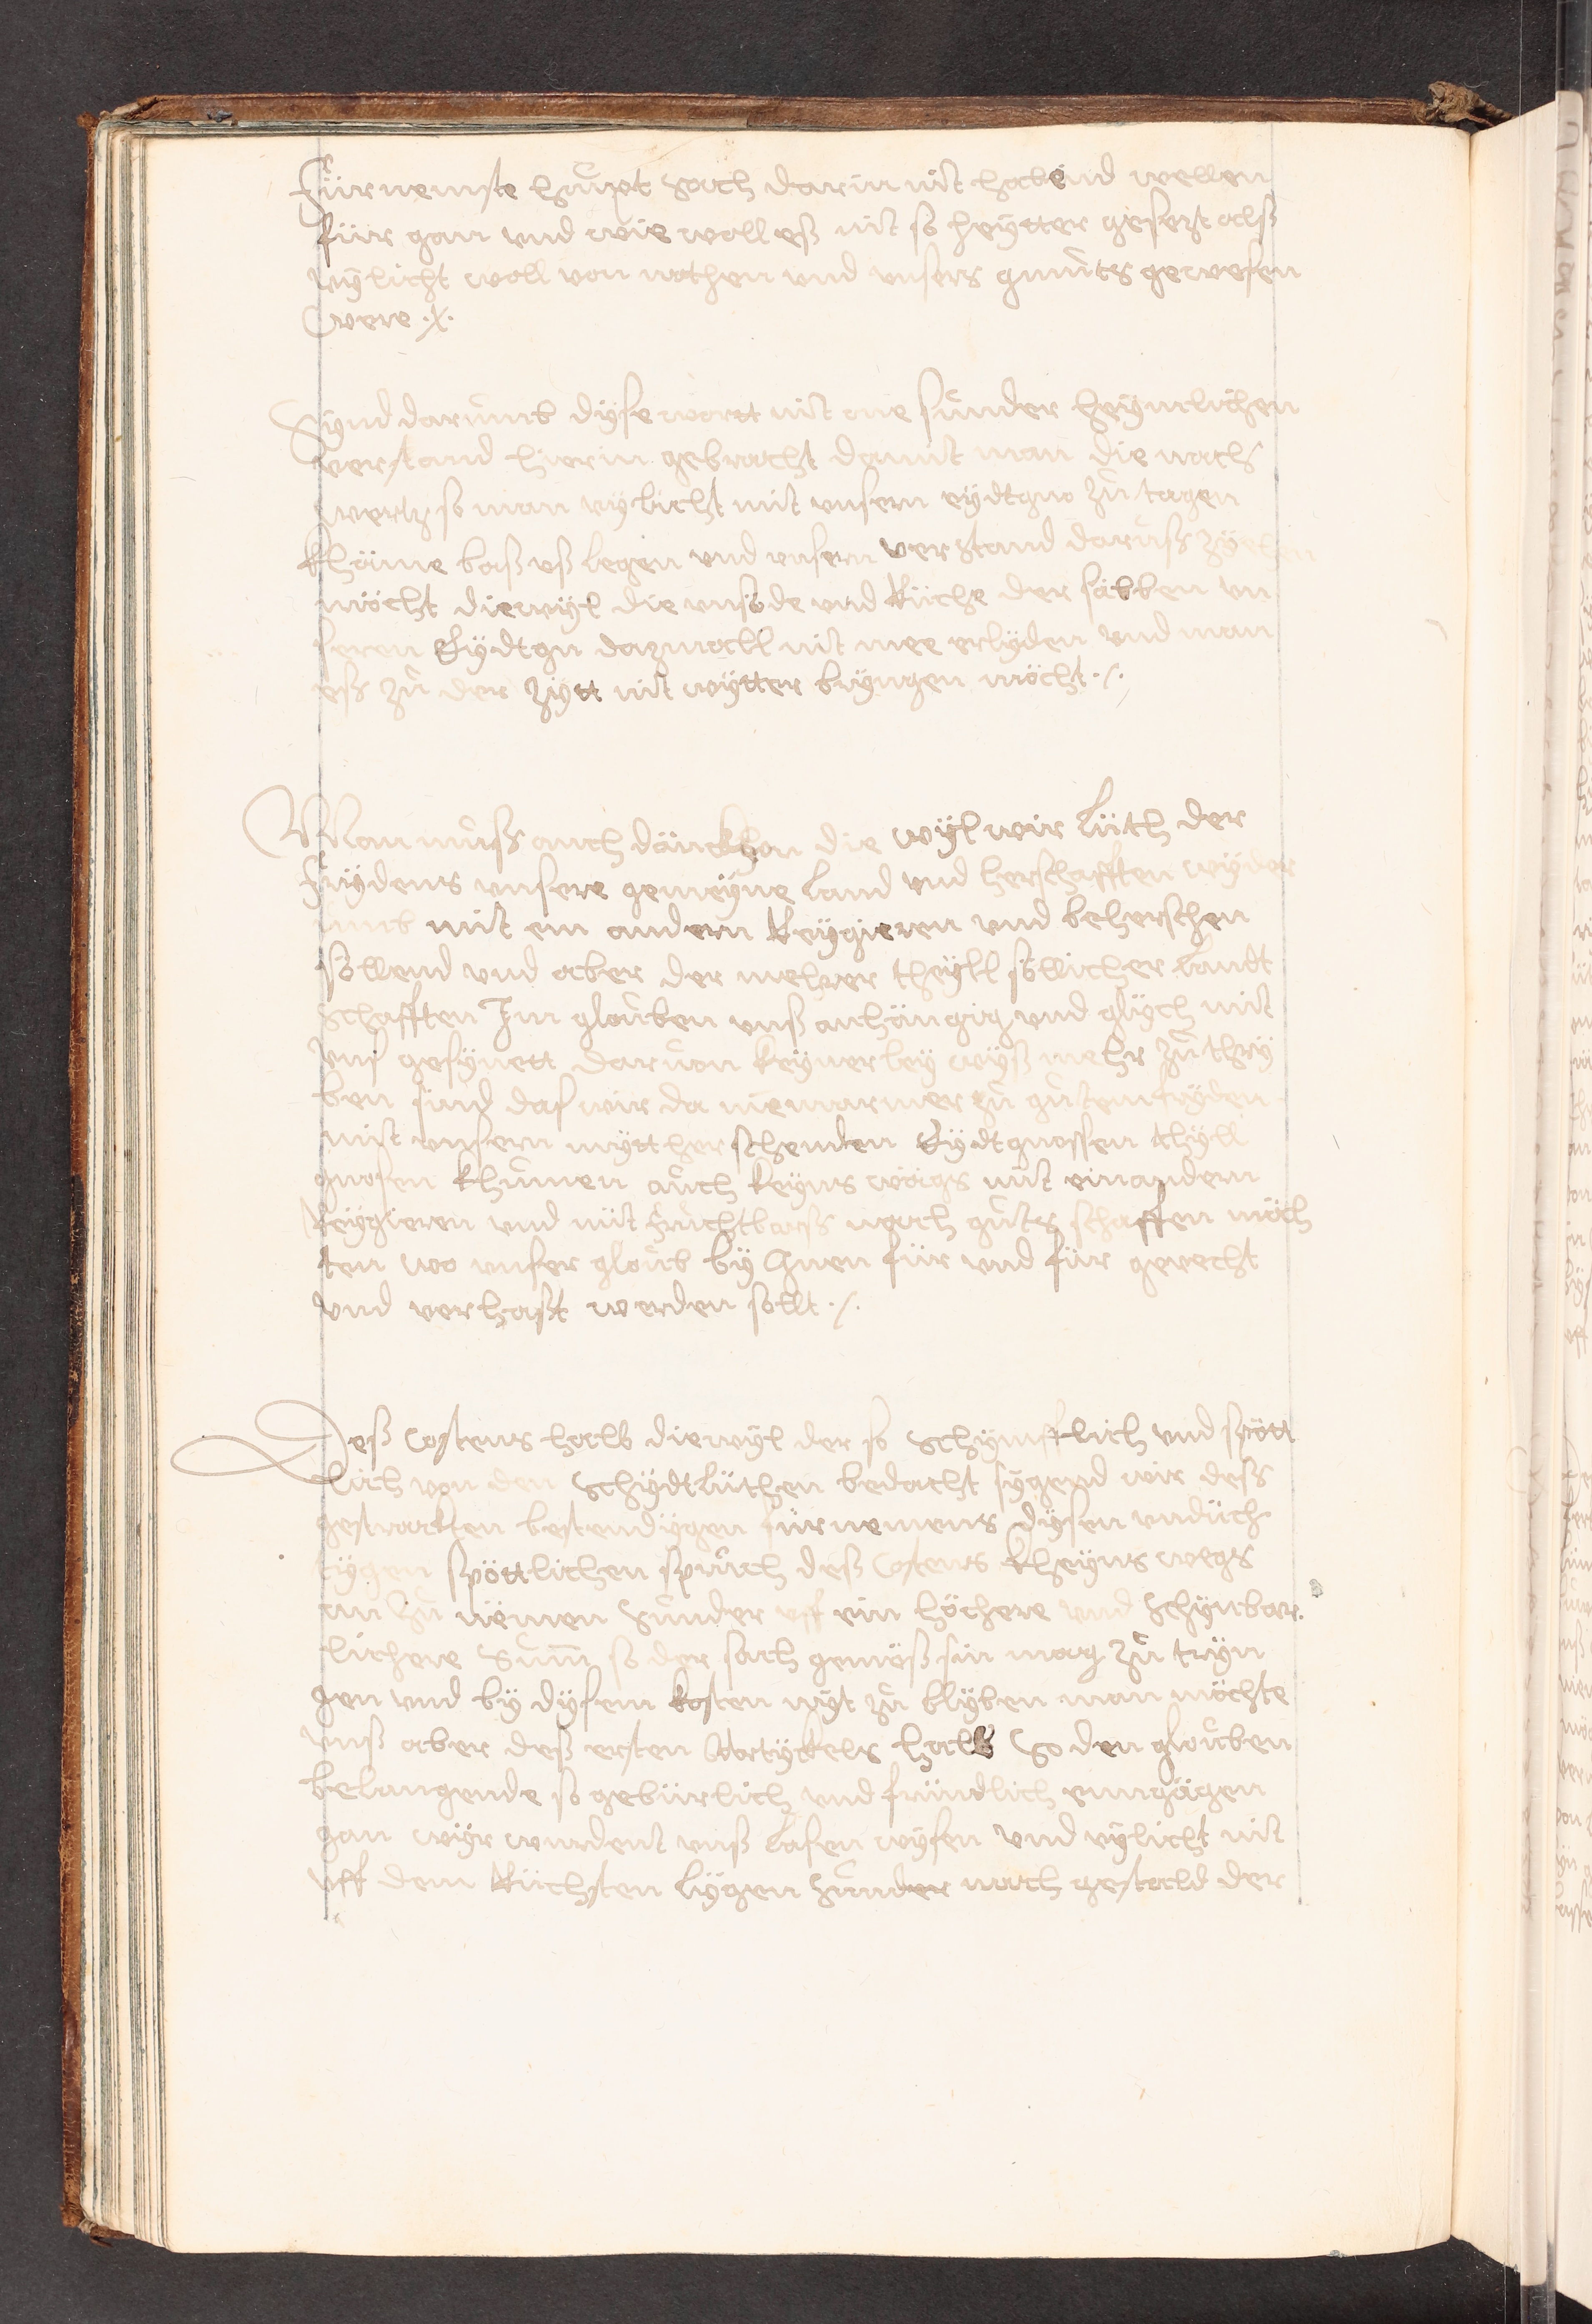 Fürnemste houpt sach darin nit habend wellen
für gan vnd wie woll eß nit so heytter gesezt alß
vylicht woll von nothen vnd vnsers gmuts gewesen
were .x.
Synd darumb dyse wortt nit one sunder heymlichen
verstand hierin gebracht damit man die nach
wertz so man vylicht mit vnsern eydtgno zu tagen
khäme baß vß legen vnd vnsern verstand daruß zyehen
möcht diewyl die vnsöde vnd Rüche der sälben vn
seren Eydtgn dazmall nit mee erlyden vnd man
eß zu der zytt nit wytter bryngen möcht ./.
Man muß auch dänckhen die wyl wir lüth der
frydens vnsere gemeyne land vnd herschafften wyder
umb mit ein andern Reygieren vnd beherschen
söllend vnd aber der mehrer theyll söllicher landt
schafften Im glouben vnß anhängig vnd glych mit
vns gesynett daruon keynerley wyß mehr zu thry
ben sind das wir da niemarmer zu gutem fryden
mit vnsern mytt herschenden Eydtgnossen theyll
gnosen khumen auch keyns wägs mit einandern
Reygieren vnd nüt fruchtbarß noch guts schaffen möch
ten wo vnser gloub by Inen für vnd für gevecht
vnd verhast werden sollt ./.
Deß Costens halb diewyl der so schympfflich vnd spött
lich von den Schydtlüthen bedacht sygend wir deß
gestrackten bestendygen fürnemens dysen vndüch
tygen spöttlichen spruch deß Costens kheyns wegs
an zu nëmen Sunder vff ein höchere vnd schynbar.
lichere Sum so der sach gemäß sin mag zu tryn
gen vnd by dysem kosten nyt zu blyben man möchte
vnß aber deß ersten Artyckels halb So den glouben
belangende so gebürlich vnd fründlich enngägen
gan wyr wurdent vnß lasen wysen vnd vylicht nit
vff dem Rüchsten lygen Sunder nach gestalld der